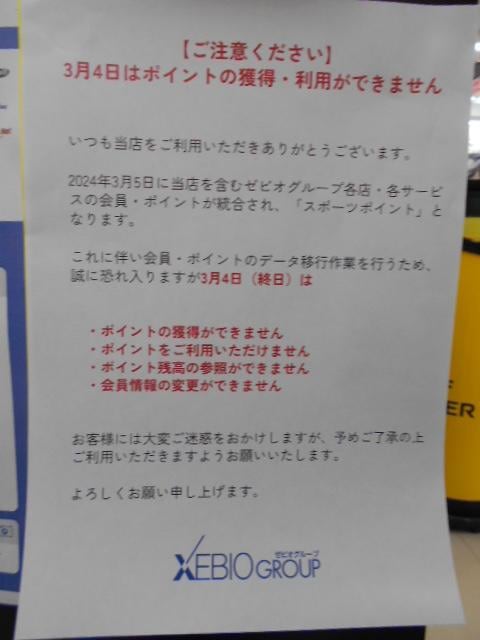 【ご注意ください】
3月4日はポイントの獲得・利用ができません
いつも当店をご利用いただきありがとうございます。
2024年3月5日に当店を含むゼビオグループ各店・各サービ
スの会員・ポイントが統合され、「スポーツポイント」と
なります。
これに伴い会員・ポイントのデータ移行作業を行うため、
誠に恐れ入りますが3月4日（終日）は
・ポイントの獲得ができません
・ポイントをご利用いただけません
・ポイント残高の参照ができません
・会員情報の変更ができません
お客様には大変ご迷惑をおかけしますが、予めご了承の上
ご利用いただきますようお願いいたします。
よろしくお願い申し上げます。
ゼビオグループ
XEBIO GROUP
ER